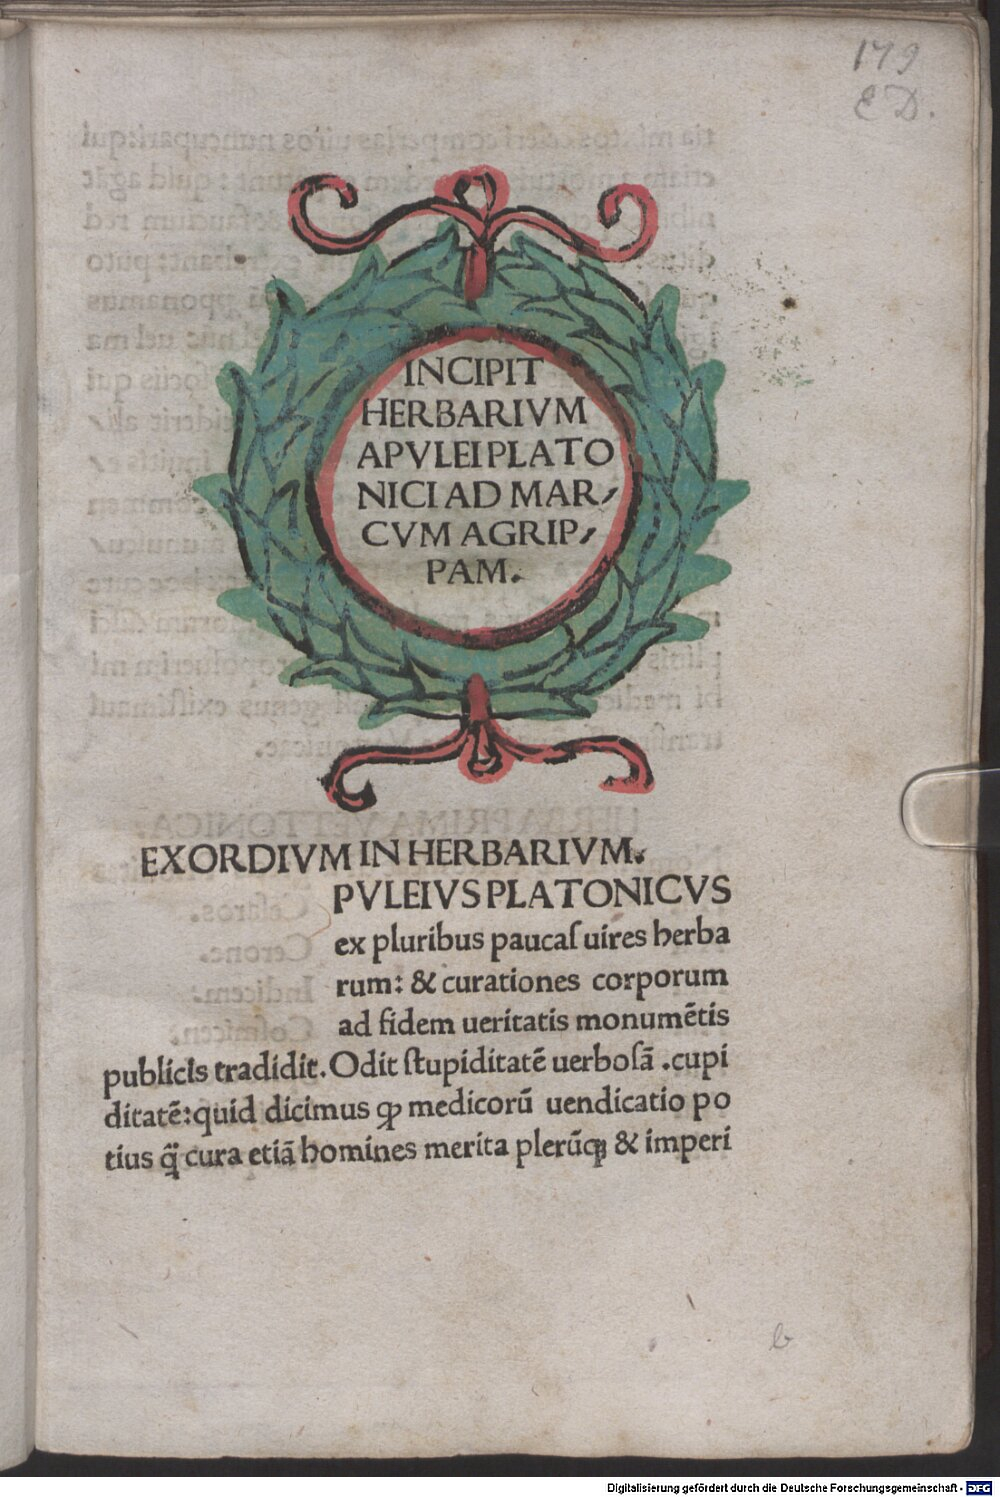 179
E D.
INCIPIT
HERBARIVM
APVLEI PLATO
NICI AD MAR,
CVM AGRIP,
PAM.
EXORDIVM IN HERBARIVM.
PVLEIVS PLATONICVS
ex pluribus paucaſ uires herba
rum: & curationes corporum
ad fidem ueritatis monumẽtis
publicis tradidit. Odit ſtupiditatẽ uerboſã .cupi
ditatẽ: quid dicimus ꝙ medicorũ uendicatio po
tius q̃ cura etiã homines merita plerũqꝫ & imperi
b
Digitalisierung gefördert durch die Deutsche Forschungsgemeinschaft - DFG